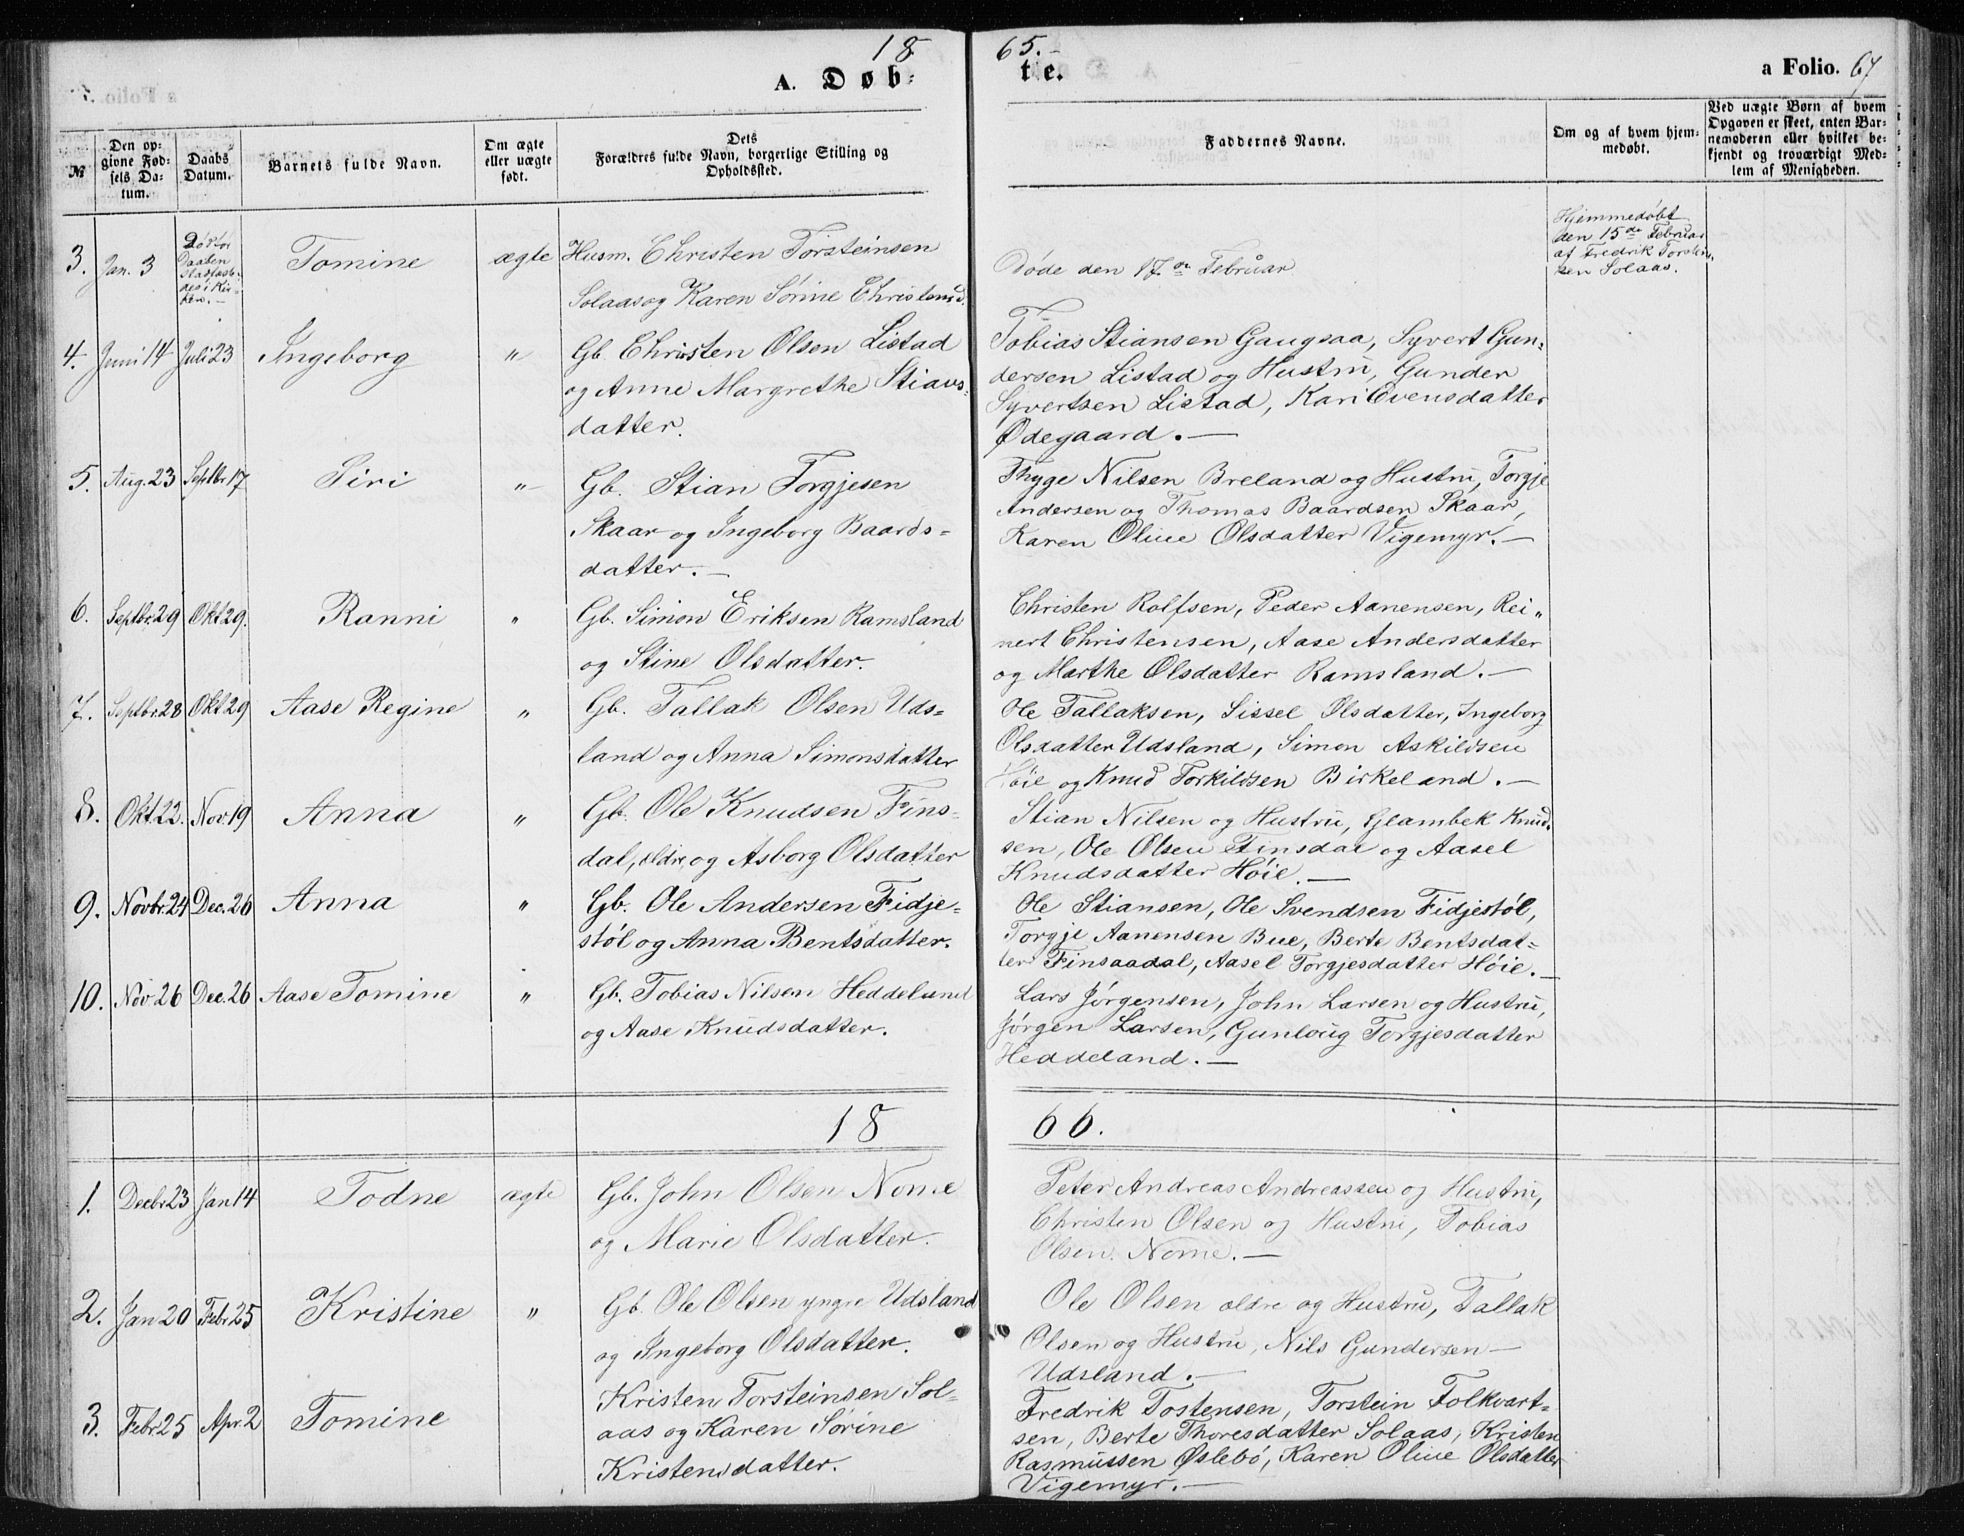 18 65.-
A. Døb- te. a Folio. 67
№ Den opgivne Fødsels Datum. Daabs Datum. Barnets fulde Navn. Om ægte eller uægte født. Dets Forældres fulde Navn, borgerlige Stilling og Opholdssted. Faddernes Navne. Om og af hvem hjemmedøbt. Ved uægte Børn af hvem Opgaven er skeet, enten Barnemoderen eller hvilket bekjendt og troværdigt Medlem af Menigheden.
3. Jan. 3 Død før Daaben stadfæstedes i Kirken.- Tomine ægte Husm. Christen Torsteinsen
Solaas og Karen Sørine Christensd.
Døde den 17de Februar.
Hjemmedøbt
den 15de Februar
af Fredrik Torstensen
Solaas.
4. Juni 14 Juli 23 Ingeborg " Gb. Christen Olsen Listad
og Anne Margrethe Stians-
datter.
Tobias Stiansen Gaugsaa, Syvert Gun-
dersen Listad og Hustru, Gunder
Syvertsen Listad, Kari Evensdatter
Ødegaard. —
5. Aug. 23 Septbr 17 Siri " Gb. Stian Torgjesen
Skaar og Ingeborg Baards-
datter. —
Thyge Nilsen Breland og Hustru, Torgje
Andersen og Thomas Baardsen Skaar,
Karen Oline Olsdatter Vigemyr. —
6. Septbr. 29 Okt 29. Ranni " Gb. Simon Eriksen Ramsland
og Stine Olsdatter.
Christen Rolfsen, Peder Aanensen, Rei-
nert Christensen, Aase Andersdatter
og Marthe Olsdatter Ramsland. —
7. Septbr. 28 Okt 29 Aase Regine " Gb. Tallak Olsen Uds-
land og Anna Simonsdatter
Ole Tallaksen, Sissel Olsdatter, Ingeborg
Olsdatter Udsland, Simon Askildsen
Høie og Knud Torkildsen Birkeland. —
8. Okt. 22. Nov 19 Anna " Gb. Ole Knudsen Fins-
dal, ældre, og Asborg Olsdatter
Stian Nilsen og Hustru, Eglambek Knud-
sen, Ole Olsen Finsdal og Aasel
Knudsdatter Høie. —
9. Novbr. 24 Dec. 26 Anna " Gb. Ole Andersen Fidje-
støl og Anna Bentsdatter.
Ole Stiansen, Ole Svendsen Fidjestøl,
Torgje Aanensen Bue, Berte Bentsdat-
ter Finsaadal, Aasel Torgjesdatter Høie. —
10. Nov. 26 Dec. 26 Aase Tomine " Gb. Tobias Nilsen Heddeland
og Aase Knudsdatter.
Lars Jørgensen, John Larsen og Hustru,
Jørgen Larsen, Gunloug Torgjesdatter
Heddeland. —
18 66.
1. Decbr 23 Jan 14 Todne ægte Gb. John Olsen Nome
og Marie Olsdatter.
Peter Andreas Andreassen og Hustru,
Christen Olsen og Hustru, Tobias
Olsen Nome. —
2. Jan 20 Febr 25 Kristine " Gb. Ole Olsen yngre Udsland
og Ingeborg Olsdatter.
Ole Olsen ældre og Hustru, Tallak
Olsen og Hustru, Nils Gundersen —
Udsland. —
3. Febr 25 Apr. 2 Tomine Kristen Torsteinsen Sol-
aas og Karen Sørine
Kristensdatter.
Fredrik Tostensen, Torstein Folkvart-
sen, Berte Thoresdatter Solaas, Kristen
Rasmussen Øslebø, Karen Oline Olsdatter
Vigemyr. —